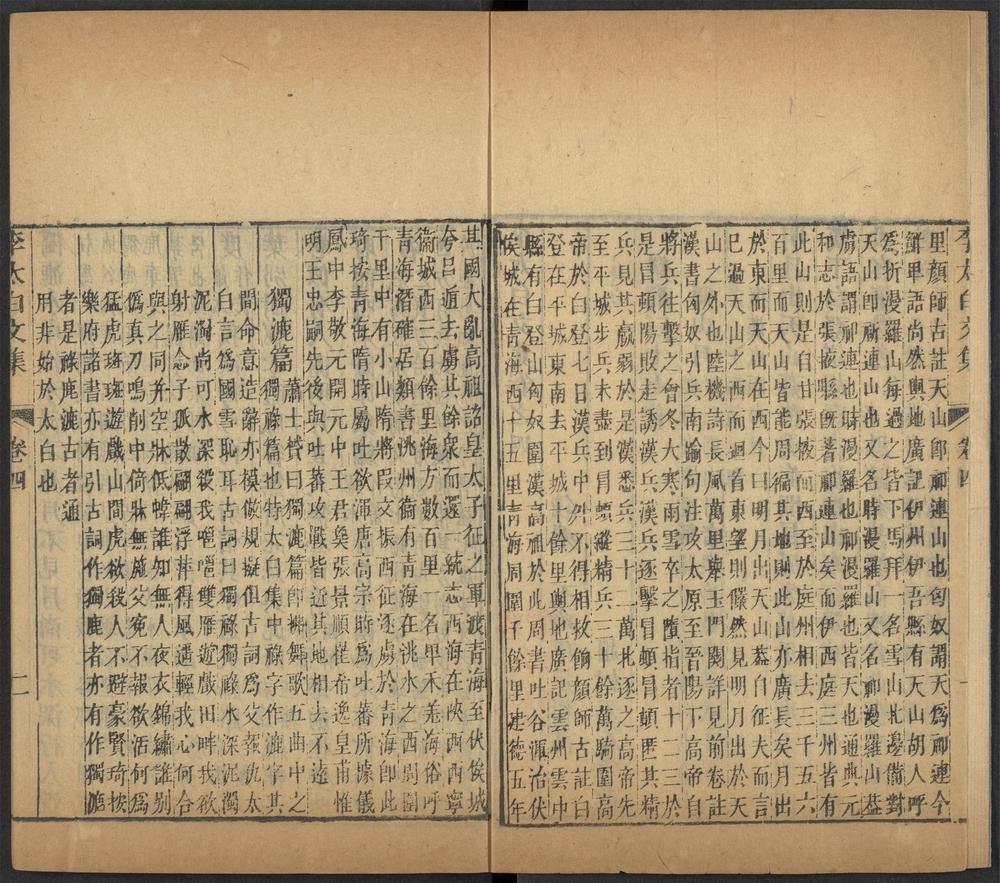 李太白文集
卷四
里顏師古註天山卽祁連山也匈奴謂天爲祁連今
鮮卑語尚然輿地廣記伊州伊吾縣有天山胡人呼
爲折漫羅山每過之皆下馬拜一名雪山北邊備對
天山卽祁連山也又名時漫羅山又名祁漫羅山葢
虜語謂祁連也時漫羅也祁漫羅也皆天也通典元
和志於張掖縣旣著祁連山矣而伊西庭三州皆有
此山則是自甘張掖而西至於庭州相去三千五六
百里而天山皆能周徧其地則此山亦廣長矣月出
於東而天山在西今曰明月出天山葢自征夫而言
巳過天山之西而迴首東望則儼然見明月出於天
山之外也陸機詩長風萬里舉玉門關詳見前卷註
漢書匈奴引兵南踰句注攻太原至晉陽下高帝自
將兵往擊之會冬大寒雨雪卒之墮指者十二三於
是冒頓陽敗走誘漢兵漢兵逐擊冒頓冒頓匿其精
兵見其羸弱於是漢悉兵三十二萬北逐之高帝先
至平城步兵未盡到冒頓縱精兵三十餘萬騎圍高
帝於白登七日漢兵中外不得相救餉顏師古註白
登在平城東南去平城十餘里輿地廣記雲州雲中
縣有白登山匈奴圍漢高祖於此周書吐谷渾治伏
俟城在青海西十五里青海周圍千餘里建德五年
其國大亂高祖詔皇太子征之軍渡青海至伏俟城
夸呂遁去虜其餘衆而還一統志西海在陝西西寧
衞城西三百餘里海方數百里一名卑禾羌海俗呼
青海潛確居類書洮州衞有青海在洮水之西周圍
千里中有小山隋將段文振西征逐虜於青海卽此
琦按青海隋時屬吐谷渾唐高宗時爲吐蕃所據儀
鳳中李敬元開元中王君㚟張景順崔希逸皇甫惟
明王忠嗣先後與吐蕃攻戰皆近其地相去不遠
獨漉篇
蕭士贇曰獨漉篇卽拂舞歌五曲中之
獨祿篇也特太白集中祿字作漉字其
間命意造辭亦模倣規擬但古詞爲父報仇太
白言爲國雪恥耳古詞曰獨祿獨祿水深泥濁
泥濁尚可水深殺我嗈嗈雙雁遊戲田畔我欲
射雁念子孤散翩翩浮萍得風遥輕我心何合
與之同并空牀低帷誰知無人夜衣錦繡誰別
僞真刀鳴削中倚牀無施父寃不報欲活何爲
猛虎班班遊戲山間虎欲殺人不避豪賢琦按
樂府諸書亦有引古詞作獨鹿者亦有作獨漉
者是祿鹿漉古者通
用非始於太白也
李太白文集
卷四